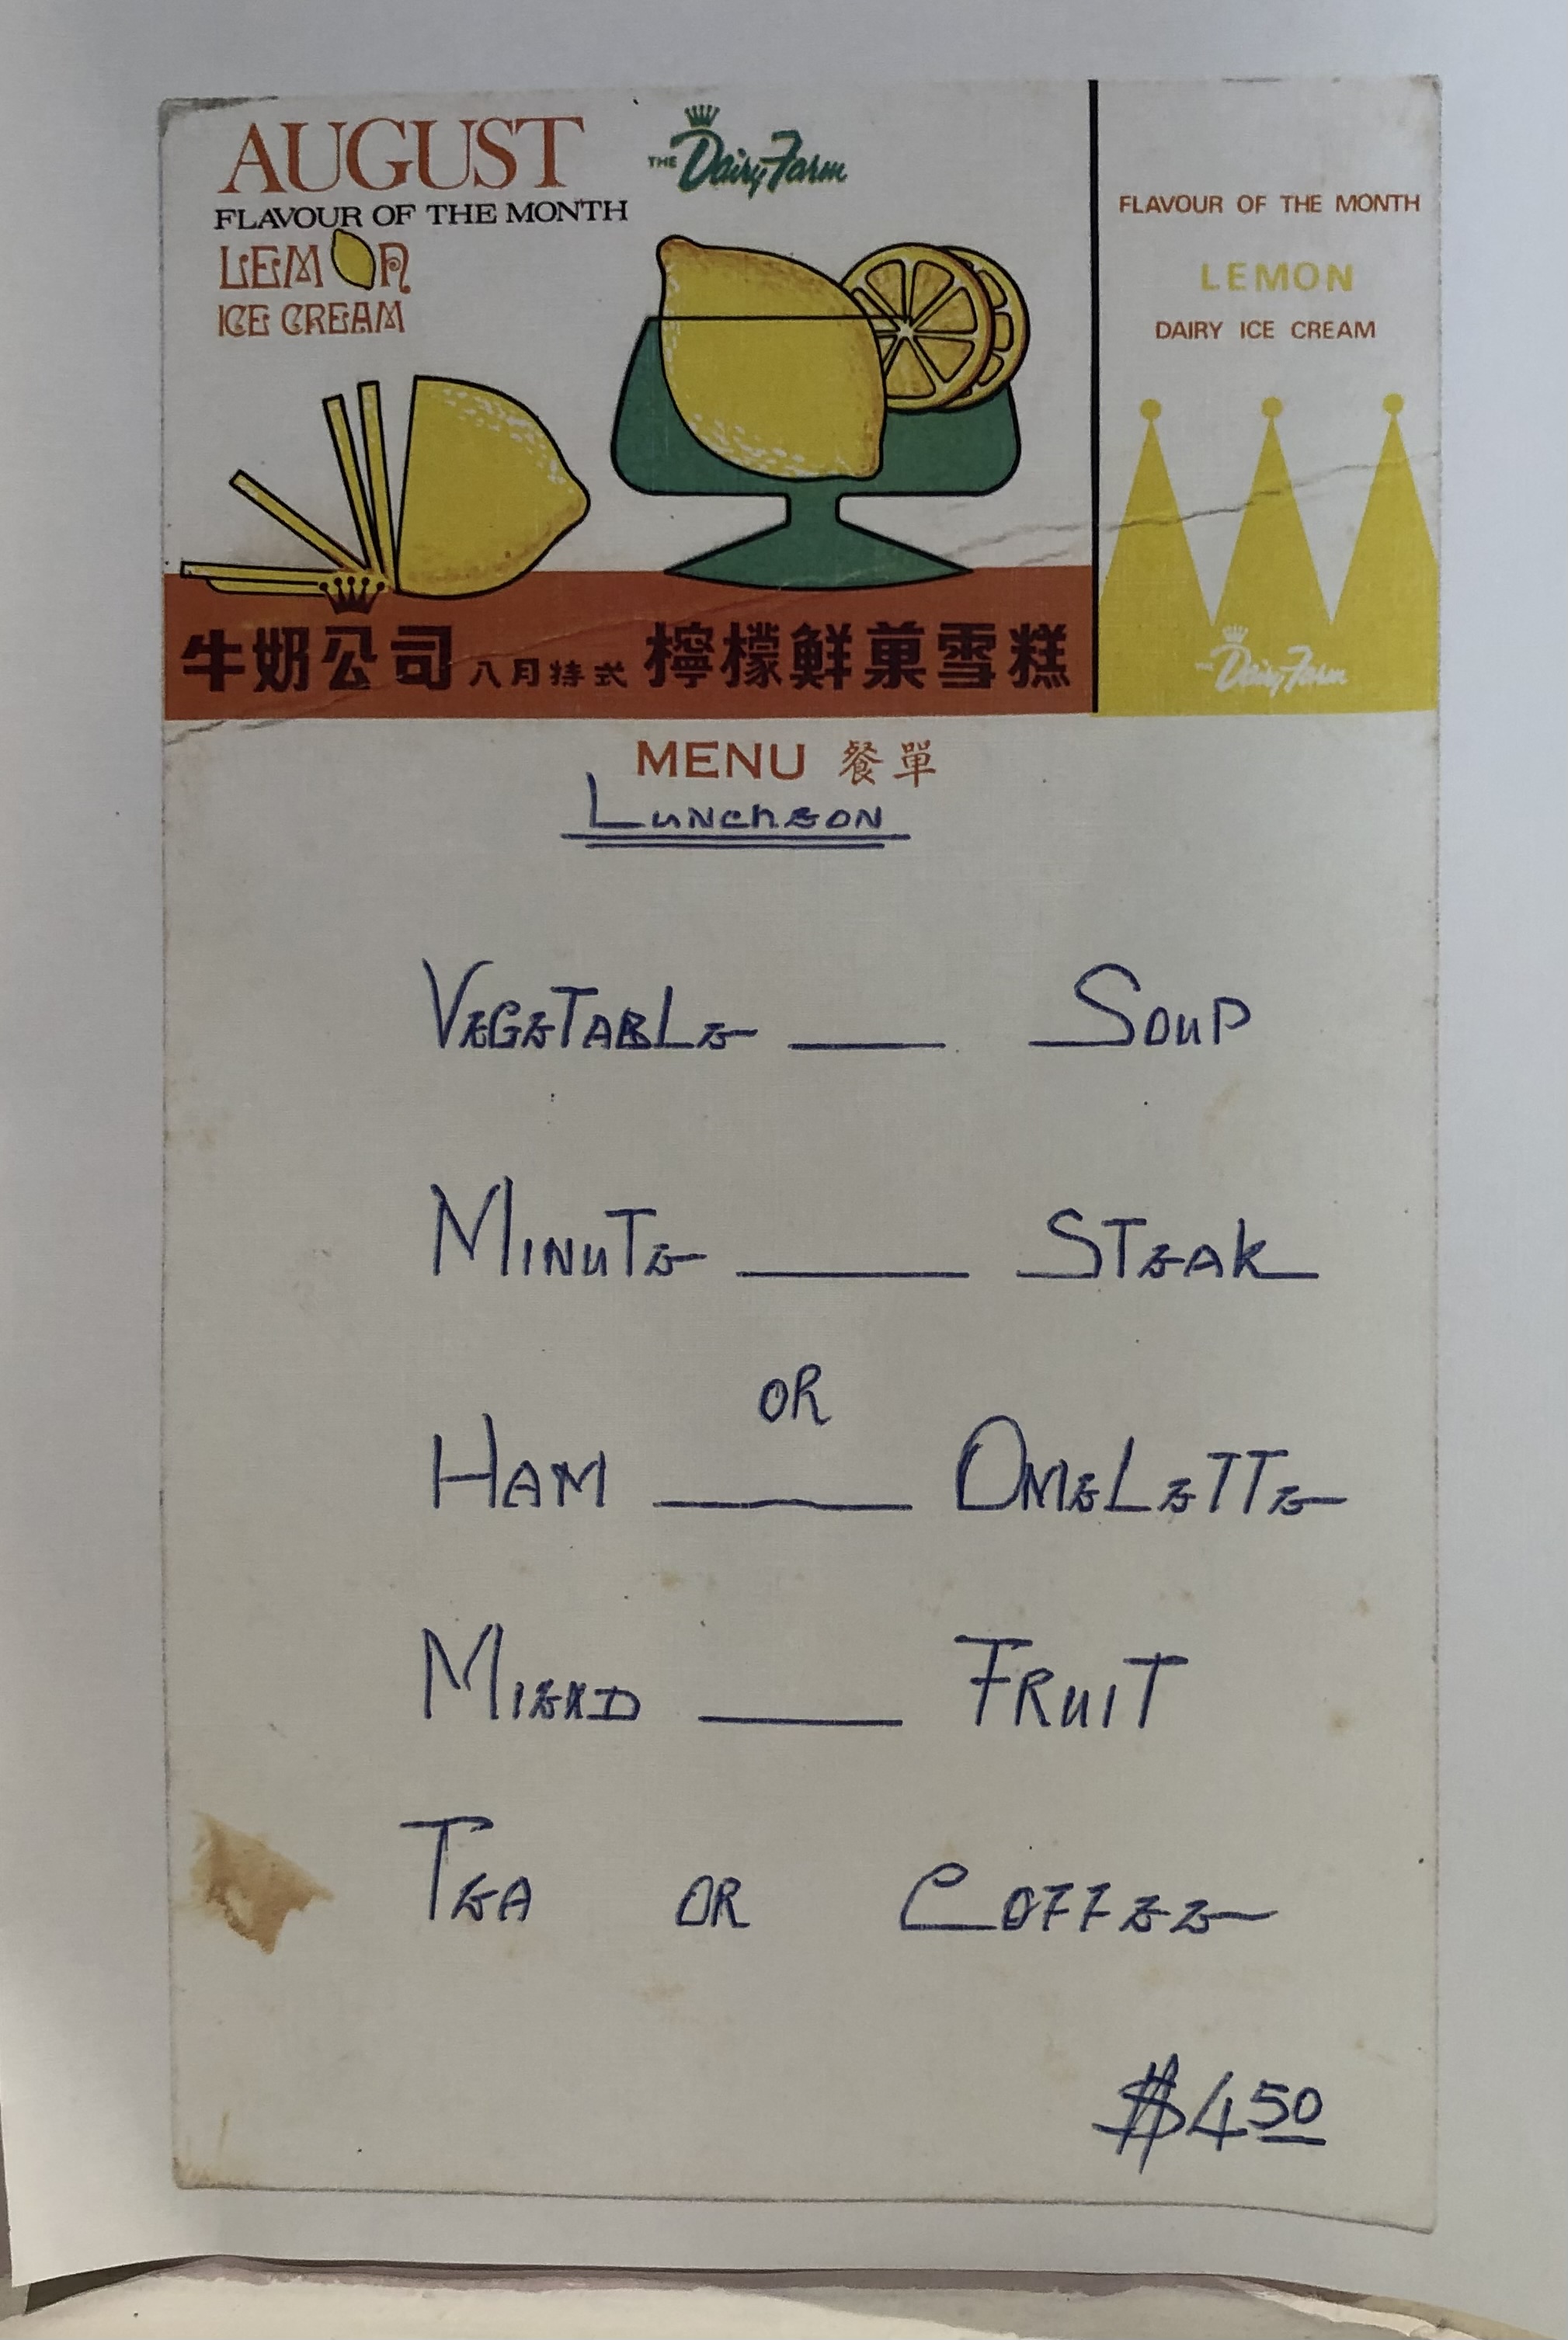 AUGUST
THE Dairy Farm
FLAVOUR OF THE MONTH
LEMON
ICE CREAM
牛奶公司 八月特式 檸檬鮮菓雪糕
FLAVOUR OF THE MONTH
LEMON
DAIRY ICE CREAM
THE Dairy Farm
MENU 餐單
LUNCHEON
VEGETABLE __ SOUP
MINUTE __ STEAK
OR
HAM __ OMELETTE
MIEXD __ FRUIT
TEA OR COFFEE
$4 50